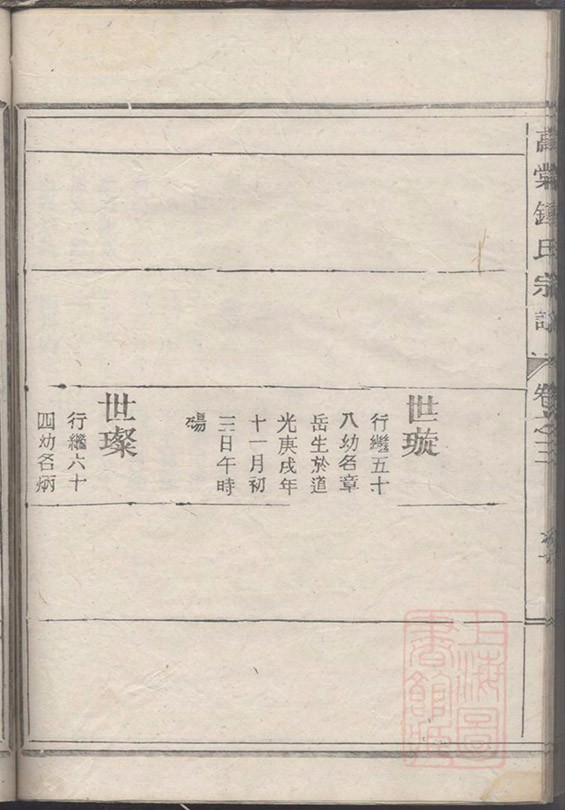 棠鍾氏宗譜
卷之三
世璇
行繼五十
八幼名章
岳生於道
光庚戌年
十一月初
三日午時
殤
世璨
行繼六十
四幼名炳
上海圖
書館藏